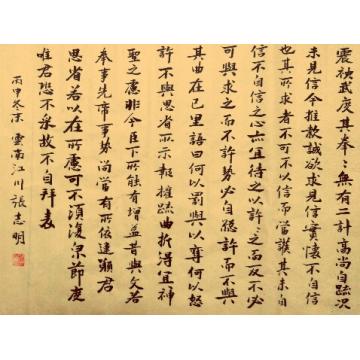 震神武度其拳〻無有二計高尚自疏況
未見信今推款誠欲求見信實懷不自信
也其所求者不可不以信而當護其未自
信不自信之心亦宜待之以許〻之而反不必
可與求之而不許勢必自絕許而不與
其曲在己里語曰何以罰與以奪何以怒
許不與思省所示報權疏曲折得宜神
聖之慮非今臣下所能有增益昔與文若
奉事先帝事勢尚當有所依違願君
思省若以在所慮可不須復節度
唯君恐不采故不自拜表
丙申冬末 雲南江川張志明